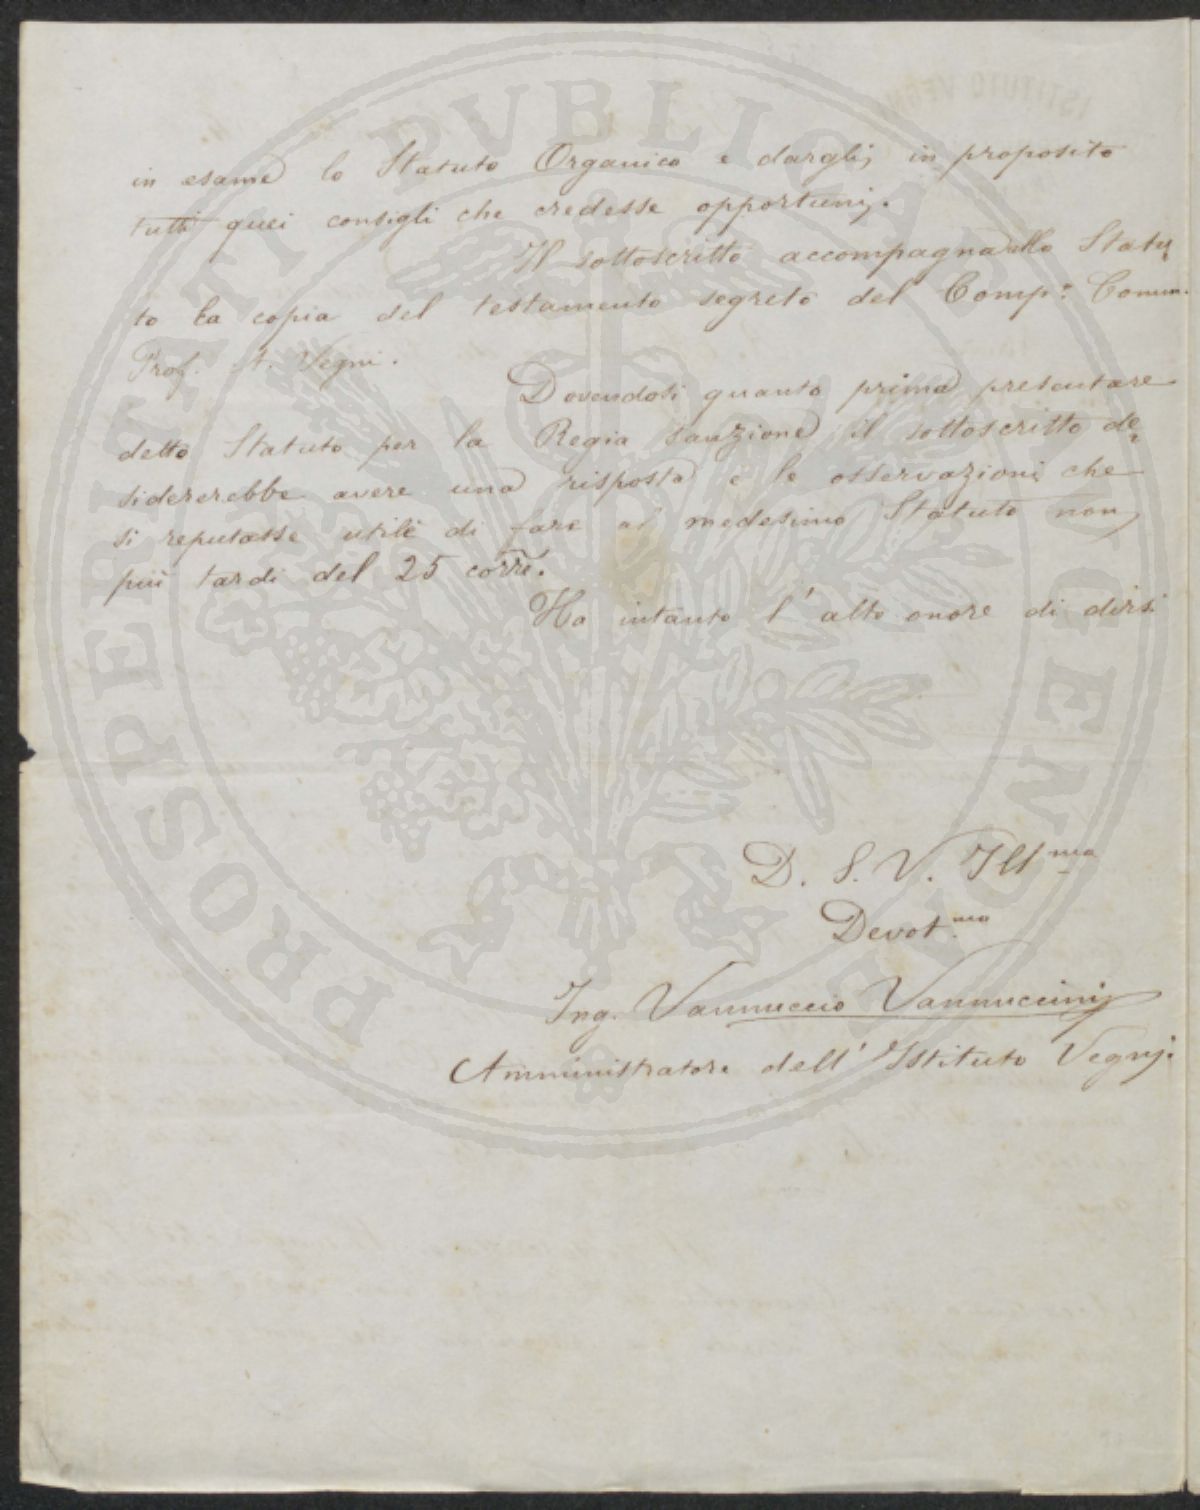 in esame lo Statuto Organico e dargli in proposito
tutti quei consigli che credesse opportuni.
Il sottoscritto accompagna allo Statu
to la copia del testamento segreto del Comp.to Comm.
Prof. A. Vegni.
Dovendosi quanto prima presentare
detto Statuto per la Regia sanzione il sottoscritto de
sidererebbe avere una risposta e le osservazioni che
si reputasse utile di fare al medesimo Statuto non
più tardi del 25 corre.
Ha intanto l'alto onore di dirsi
D. S. V. Ill.ma
Devot.mo
Ing. Vannuccio Vannuccini
Amministratore dell'Istituto Vegni.
PROSPERITATI PVBLICAE AVGENDAE
ISTITUTO VEGNI